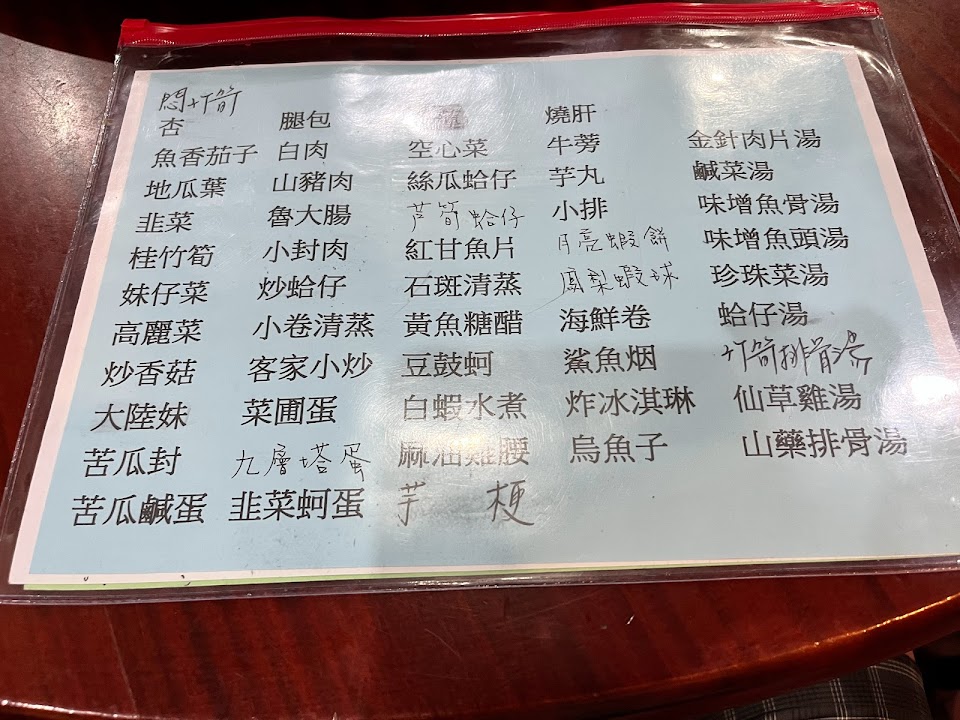 悶竹筍
杏 腿包 龍 燒肝
魚香茄子 白肉 空心菜 牛蒡 金針肉片湯
地瓜葉 山豬肉 絲瓜蛤仔 芋丸 鹹菜湯
韭菜 魯大腸 芦筍蛤仔 小排 味增魚骨湯
桂竹筍 小封肉 紅甘魚片 月亮蝦餅 味增魚頭湯
妹仔菜 炒蛤仔 石斑清蒸 鳳梨蝦球 珍珠菜湯
高麗菜 小卷清蒸 黃魚糖醋 海鮮卷 蛤仔湯
炒香菇 客家小炒 豆鼓蚵 鯊魚烟 竹筍排骨湯
大陸妹 菜圃蛋 白蝦水煮 炸冰淇琳 仙草雞湯
苦瓜封 九層塔蛋 麻油雞腰 烏魚子 山藥排骨湯
苦瓜鹹蛋 韭菜蚵蛋 芋 梗